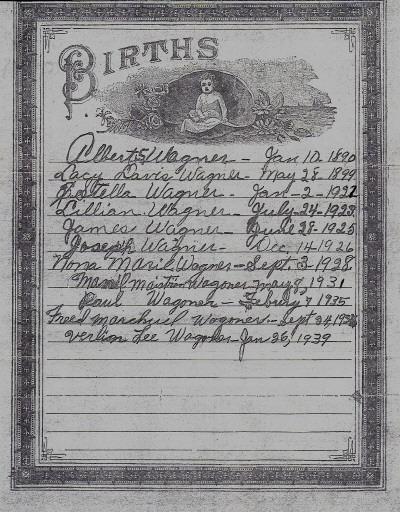 BIRTHS
Albert S Wagner - Jan 10 1890
Lacy Davis Wagner - May 28 - 1899
Rostella Wagner - Jan - 2 - 1922
Lillian Wagner - July - 24 - 1923
James Wagner - June 28 - 1925
Joseph Wagner - Dec, 14 1926
Nona Marie Wagner - Sept. 3 - 1928
Wagoner - may 8, 1931
Paul Wagoner - Febuary 1935
Freed Wagoner - Sept 24, 1936
Verlion Lee Wagoner - Jan 26, 1939